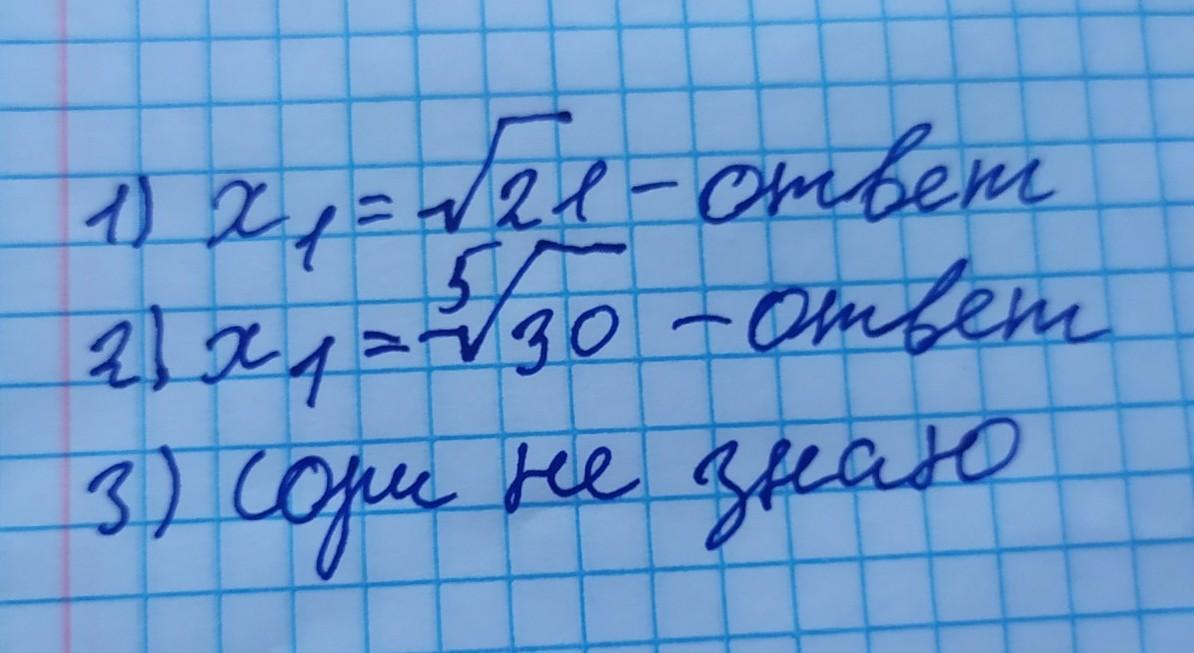 1) x₁ = √21 – ответ
2) x₁ = ⁵√30 – ответ
3) Сори не знаю